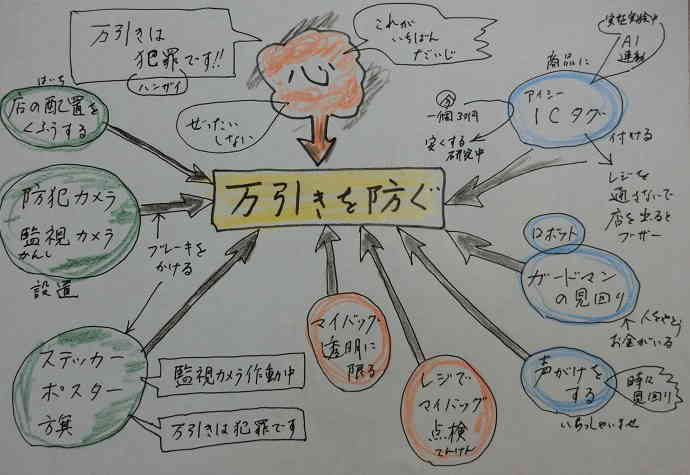 万引きは
犯罪です!!
ハンザイ
心
これが
いちばん
だいじ
ぜったい
しない
はいち
店の配置を
くふうする
防犯カメラ
監視カメラ
かんし
設置
ブレーキを
かける
ステッカー
ポスター
監視カメラ作動中
万引きは犯罪です
万引きを防ぐ
マイバッグ
透明に
限る
レジで
マイバッグ
点検
てんけん
商品に
アイシー
ICタグ
付ける
AI
連動
今
一個30円
安くする
研究中
レジを
通さないで
店を出ると
ブザー
ロボット
ガードマン
の見回り
お金がいる
声がけを
する
時に
見回り
いらっしゃいませ